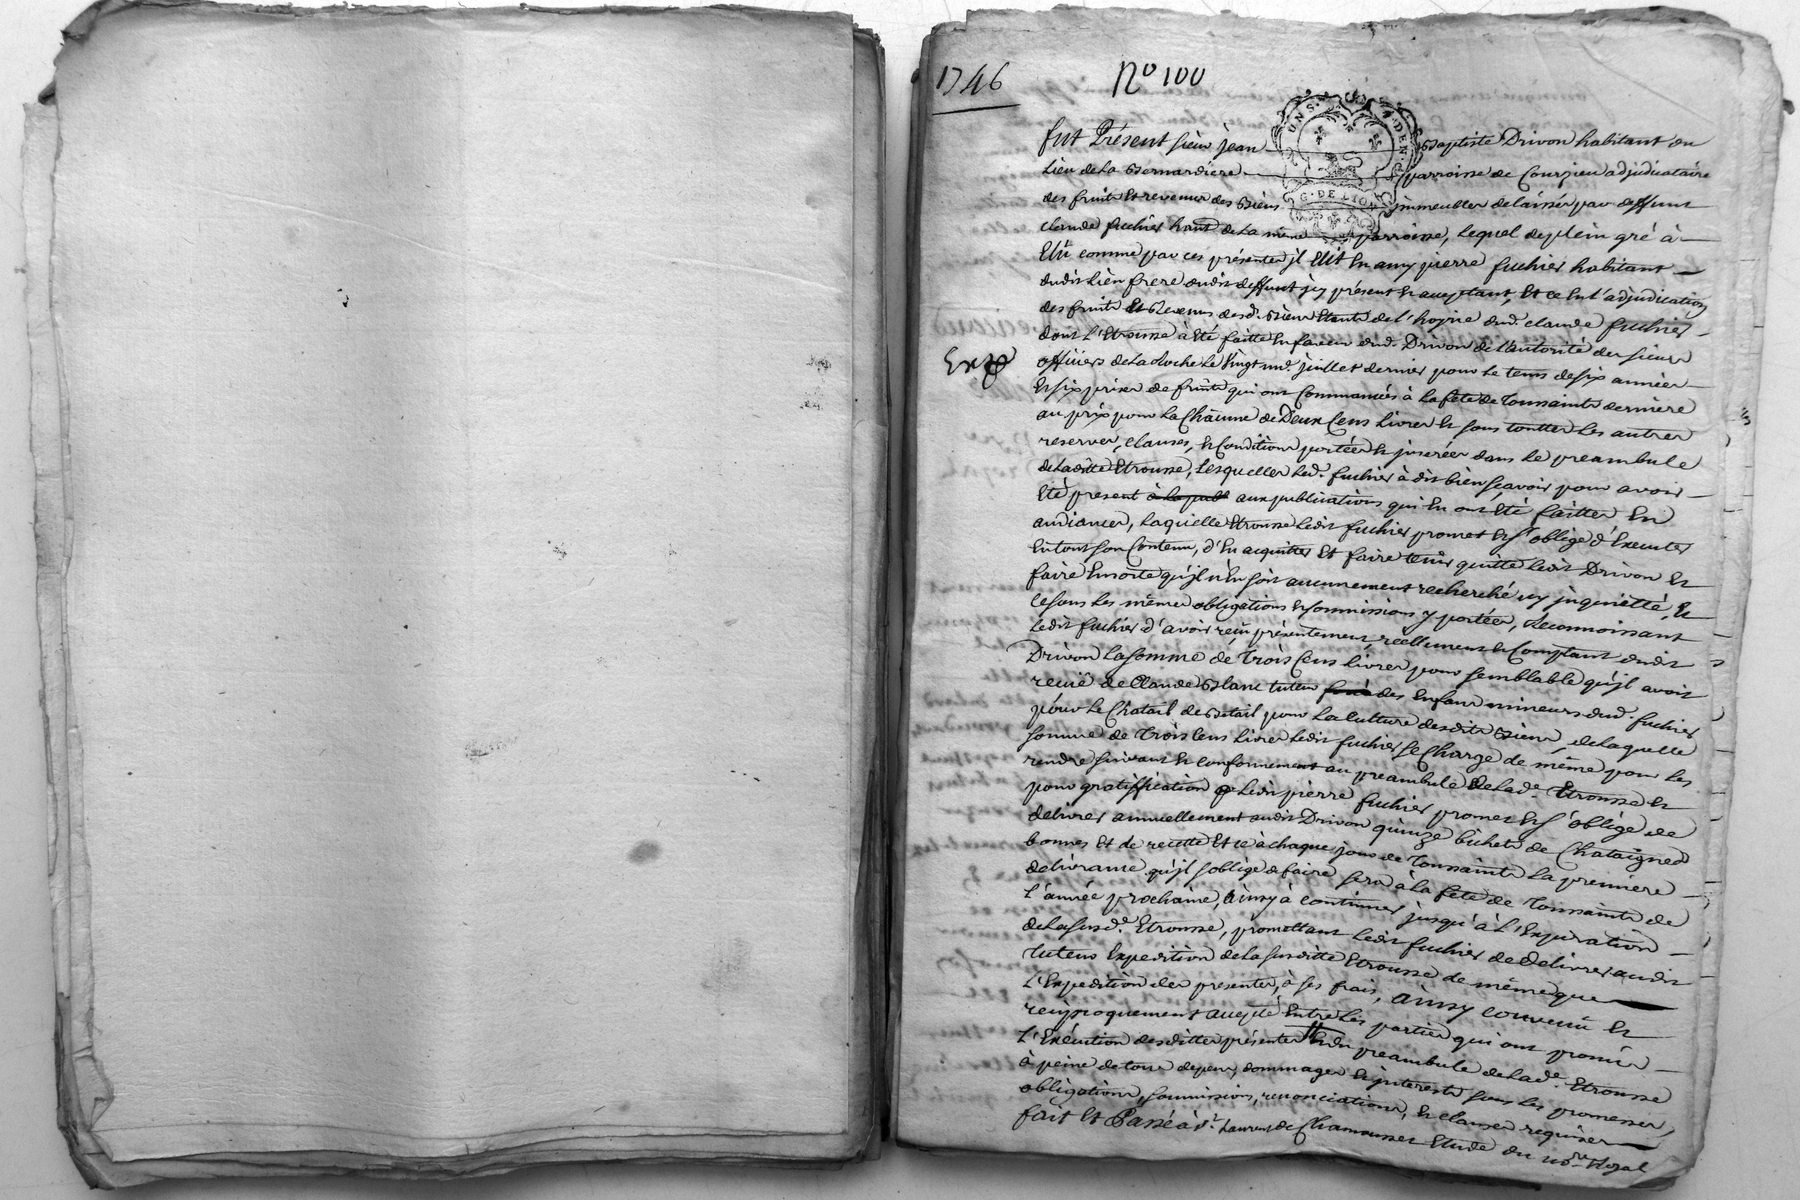 1746
No 100
UNS. DEN.
G. DE LYON
fut Présent sieur jean Baptiste Drivon habitant du
Lieu de La Bernardiere parroisse de Courzieu adjudicataire
des fruits et revenus des Biens immeubles delaissés par deffunt
claude fuchier hant de La même parroisse, Lequel de plein gré à
Elû comme par ces présentes jl Elit En amy pierre fuchier habitant
dudit Lieu frere dudit deffunt jcy présent et acceptant, Et ce En L'adjudication
des fruits et Revenus desd. Biens Etants de L'hoyrie dud. claude fuchier
dont L'Etrousse à Eté faitte En faveur dud. Drivon de L'autorité des sieurs
Exp
officiers de La Roche Le Vingt juillet dernier pour Le tems de six années
et six prises de fruits qui ont Commancés à La fête de Toussaints derniere
au prix pour La Châcune de Deux Cens Livres et sous touttes Les autres
reserves, clauses, et Conditions portées et jnserées dans Le preambule
de La ditte Etrousse, Lesquelles Led. fuchier à dit bien sçavoir pour avoir
Eté present à La publ aux publications qui En ont Eté faittes En
audiances, Laquelle Etrousse Ledit fuchier promet et s'oblige d'Executer
En tout son Contenu, d'En acquitter Et faire tenir quitte Ledit Drivon Et
faire Ensorte qu'jl n'En soit aucunement recherché ny jnquietté, Et
ce sous Les mêmes obligations et soumissions y portées, Reconnoissant
Ledit fuchier d'avoir reçu présentement, réellement et Comptant dudit
Drivon La somme de Trois Cens Livres pour semblable qu'jl avoit
reçuë de Claude Blanc tuteur des Enfans mineurs dud. fuchier
pour Le Chatail de Betail pour La Culture desdits Biens, de Laquelle
somme de Trois Cens Livres Ledit fuchier se Charge de même pour Les
rendre suivant et conformement au preambule de Lad.e Etrousse et
pour gratiffication Ledit pierre fuchier promet et s'oblige de
délivrer annuellement audit Drivon quinze bichets de Chataignes
bonnes Et de recette Et ce à chaque jour de Toussaints La premiere
délivrance qu'jl s'oblige de faire sera à La fête de Toussaints de
L'année prochaine, Ainsy à continuer jusqu'à L'Expiration
de La susd.e Etrousse, promettant Ledit fuchier de Délivrer audit
tuteur Expedition de La susditte Etrousse de même que
L'Expedition des presentes, à ses frais, Ainsy convenu et
reciproquement accepté Entre Les parties qui ont promis
L'Exécution desdittes présentes et du preambule de Lad.e Etrousse
à peine de tous depens, dommages et jnterests sous Les promesses,
obligations, soumissions, renonciations, et clauses requises
fait Et Passé à St. Laurent de Chamousset Etude du no.re Royal